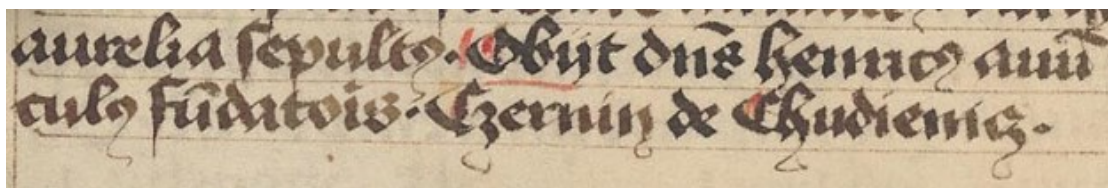 aurelia sepultꝯ. Obijt dn̄s henricꝯ auū
culꝯ fūdatoīs. Czernin de Chudienicz.